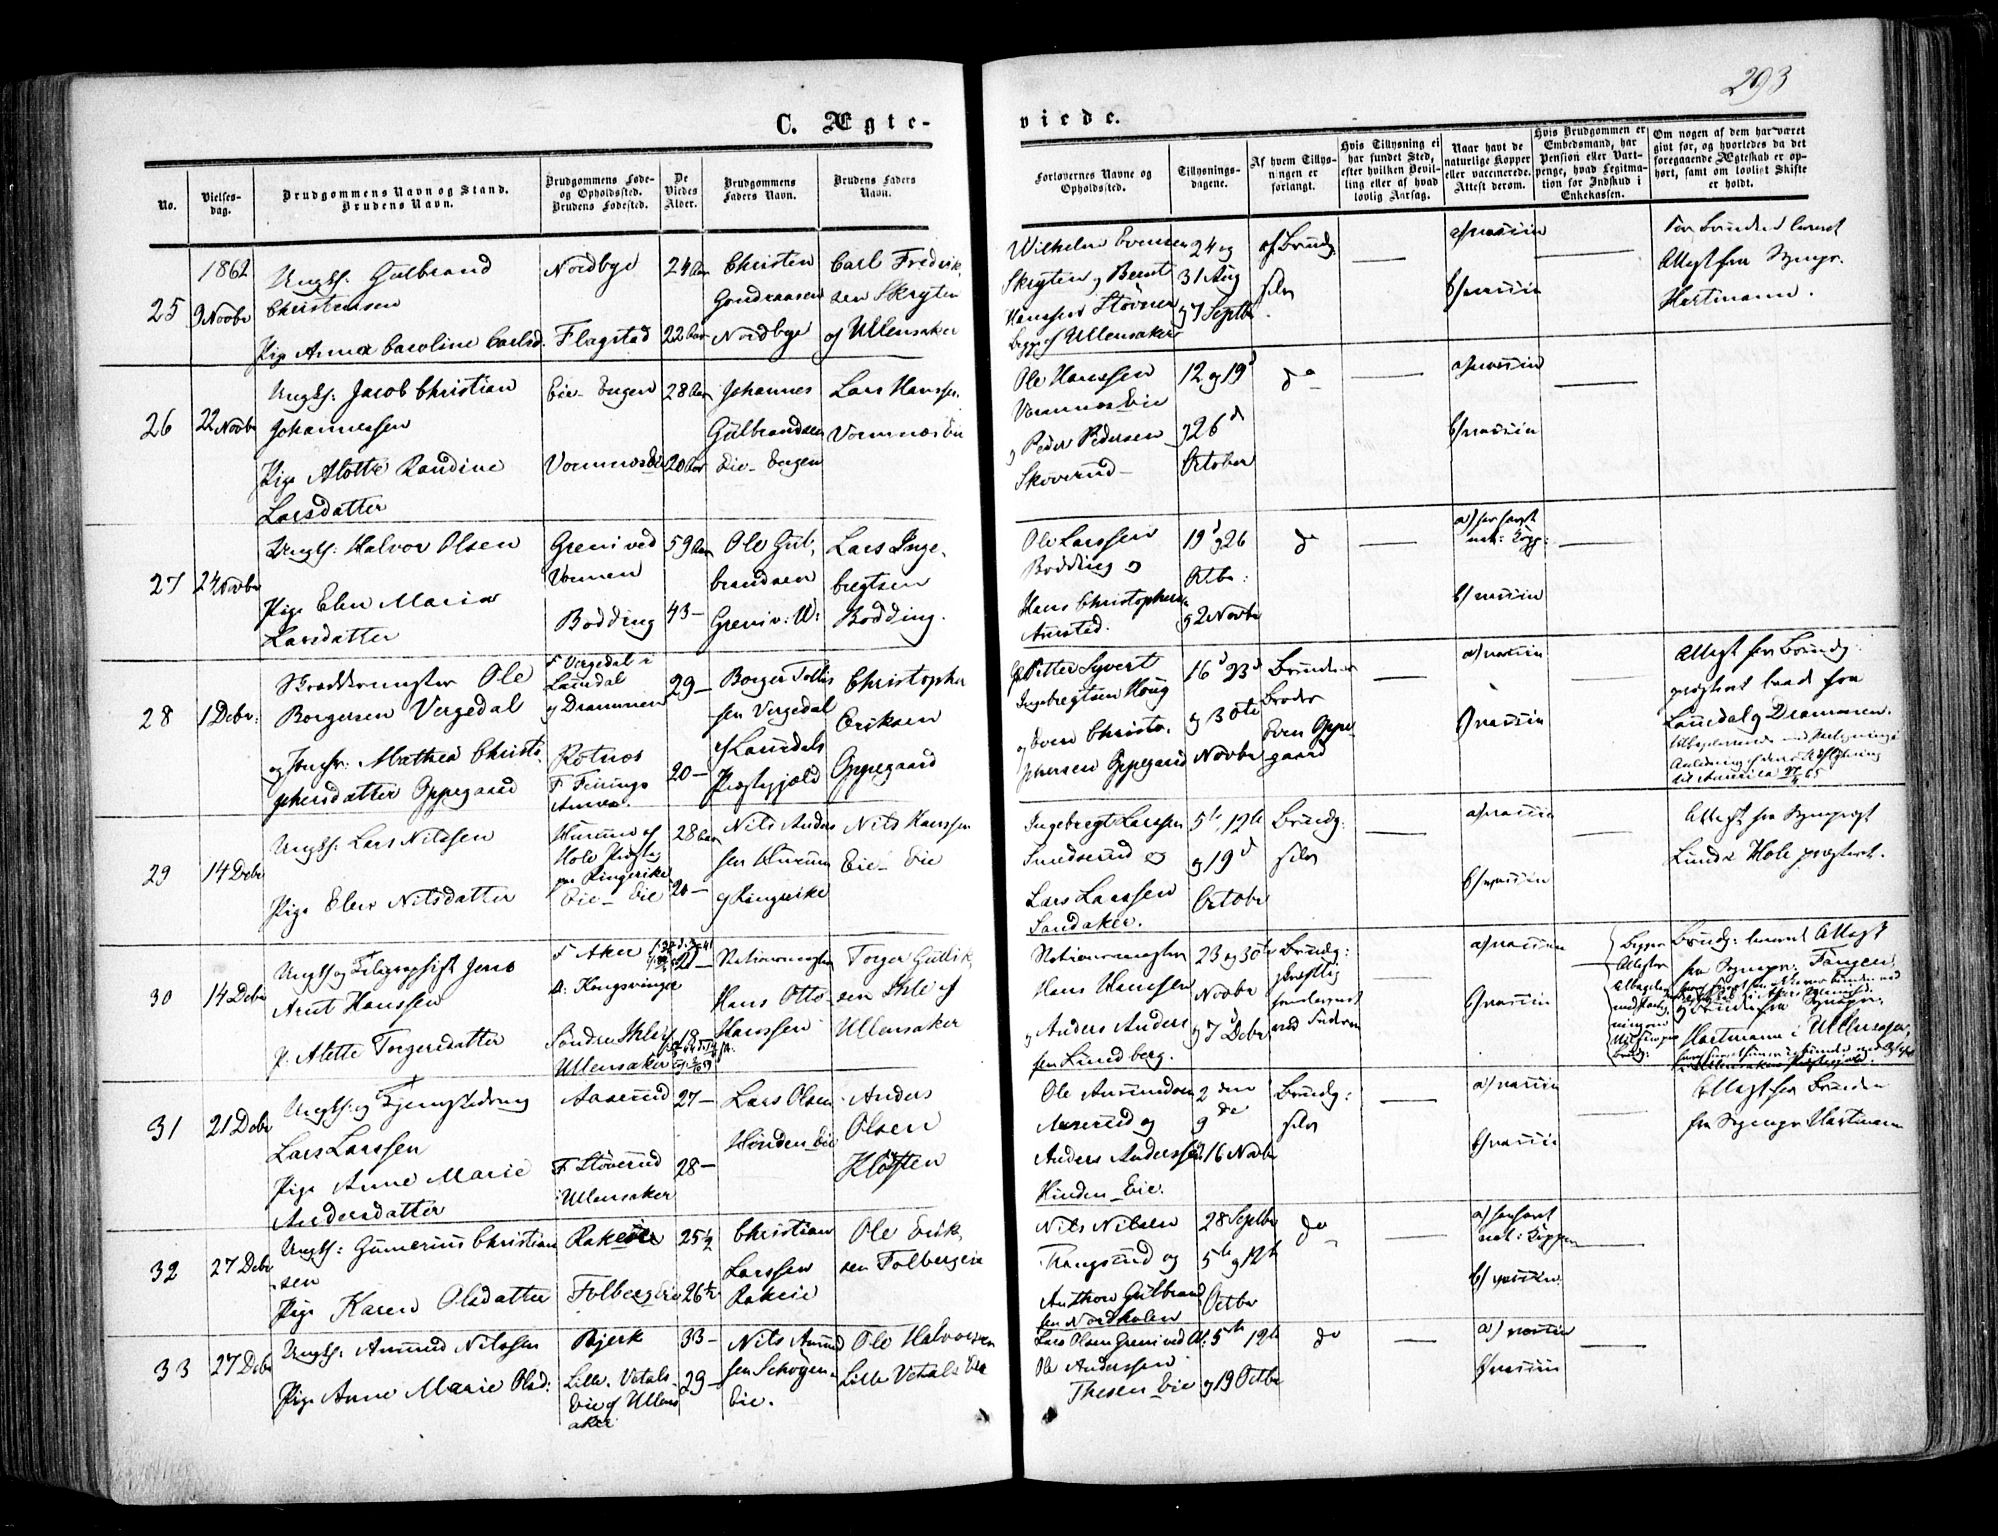 293
C. Ægte-
viede.
No.
Vielses-
dag.
Brudgommens Navn og Stand.
Brudens Navn.
Brudgommens Føde-
og Opholdssted.
Brudens Fødested.
De
Viedes
Alder.
Brudgommens
Faders Navn.
Brudens Faders
Navn.
Forlovernes Navne og
Opholdssted.
Tillysnings-
dagene.
Af hvem Tillys-
ningen er
forlangt.
Hvis Tillysning ei
har fundet Sted,
efter hvilken Bevil-
ling eller af hvad
lovlig Aarsag.
Naar havt de
naturlige Kopper
eller vaccinerede.
Attest derom.
Hvis Brudgommen er
Embedsmand, har
Pension eller Vart-
penge, hvad Legitima-
tion for Indskud i
Enkekassen.
Om nogen af dem har været
givt før, og hvorledes da det
foregaaende Ægteskab er op-
hørt, samt om lovligt Skifte
er holdt.
25
1862
9 Novbr
Ungk: Gulbrand
Christensen
Pige Anna Caroline Carlsd.
Nordbye
Flagstad
24 Aar
22 Aar
Christen
Nordbye
Carl Fredrik-
sen Skryten
af Ullensaker
Wilhelm Evensen
Skryten og Bernt
Hanssen Støvner
begge af Ullensaker
24 og
31 Aug
og 7 Septbr
af Brudg.
selv
a) vaccin
b) vaccin
For Bruden leveret
Attest fra Sognepr.
Hartmann.
26
22 Novbr
Ungk: Jacob Christian
Johannessen
Pige Alette Randine
Larsdatter
Eie-Engen
Vormnæs Eie
28 Aar
20 Aar
Johannes
Gulbrandsen
Eie-Engen
Lars Hanssen
Vormnæs Eie
Ole Hanssen
Vormnæs Eie
og Peder Pedersen
Skovrud
12 og 19 d
og 26 d
October
do
a) vaccin
b) vaccin
27
24 Novbr
Ungk: Halvor Olsen
Pige Elen Maria
Larsdatter
Greni ved
Vormen
Bodding
59 Aar
43 -
Ole Gul-
brandsen
Greni v: W:
Lars Inge-
bregtsen
Bodding.
Ole Larssen
Bodding og
Hans Christophersen
19 d og 26
Octbr:
og 2 Novbr
do
a) har havt
nat: Kopp:
b) vaccin
28
1 Debr:
Skræddermester Ole
Borgersen Vergedal
og Jomfr: Mathea Christo-
phersdatter Oppegaard
F. Vergedal i
Laurdal
og Drammen
Rotnæs
F. Feirings
Annex.
29 -
20 -
Borger Tollef-
sen Vergedal
af Laurdals
Præstegjæld
Christopher
Eriksen
Oppegaard
Petter Syvert
Ingebregtsen Houg
og Even Christo-
phersen Oppegaard
16 d 23 d
og 30te
Novbr
Brudens
Broder
Even Oppe-
gaard
a) vaccin
b) vaccin
Attest for Brudg:
præsteret baade fra
Laurdal og Drammen.
29
14 Debr
Ungk: Lars Nilssen
Pige Elen Nilsdatter
Hole Præstegj.
paa Ringerike
Eie-Eie
28 Aar
20 -
Nils Anders-
sen
og Ringerike
Nils Hanssen
Eie-Eie
Ingebregt Larssen
Sundserud og
Lars Larssen
Sandaker.
5te, 12te
og 19 d
Octobr
Brudg:
selv
a) vaccin
b) vaccin
Attest fra Sognepræst
Lund i Hole præsteret.
30
14 Debr
Ungk. og Telegraphist Jens
Arnt Hanssen
P. Alette Torgersdatter
F. Aker
O. Kongsvinger
Søndre Ihle i
Ullensaker
21 -
18
Stationsmester
Hans Otto
Hanssen
Torger Gullik-
sen Ihle af
Ullensaker
Stationsmester
Hans Hanssen
og Anders Anders-
sen Lundberg.
23 og 30te
Novbr
og 7 d Debr
Brudg:
skriftlig
a) vaccin
b) vaccin
Brudg: leveret Attest
fra Sognepr: Fangen
Hartmann i Ullensaker
31
21 Debr
Lars Larssen
Pige Anne Marie
Andersdatter
Aaserud
F. Støverud
i Ullensaker
27 -
28 -
Lars Olsen
Hinden Eie
Anders
Olsen
Kløften
Ole Amundsen
Aaserud og
Anders Anderssen
Hinden Eie.
2 den
9 de
16 Novbr
Brudg:
selv
a) vaccin
b) vaccin
Attest for Bruden
fra Sognepr Hartmann
32
27 Debr
Ungk: Gunerius Christian-
sen
Pige Karen Olsdatter
Rakeie
Folberg Eie
25 1/2
26 1/2
Christian
Larssen
Rakeie
Ole Erik-
sen Folbergeie
Nils Nilsen
Trangsrud og
Anthon Gulbrand-
sen Nordholen
28 Septbr
5te og 12te
Octbr
do
a) har havt
nat: Kopper
b) vaccin
33
27 Debr
Ungk: Amund Nilssen
Pige Anne Marie Olsd:
Bjerk
Lille Vetals
Eie af Ullens-
aker
33 -
29 -
Nils Amund-
sen
Eie.
Ole Halvorsen
Lille Vetals Eie
Lars Olsen Greni ved W:
Ole Anderssen
Thesen Eie
5te 12te
og 19 Octbr
do
a) vaccin
b) vaccin